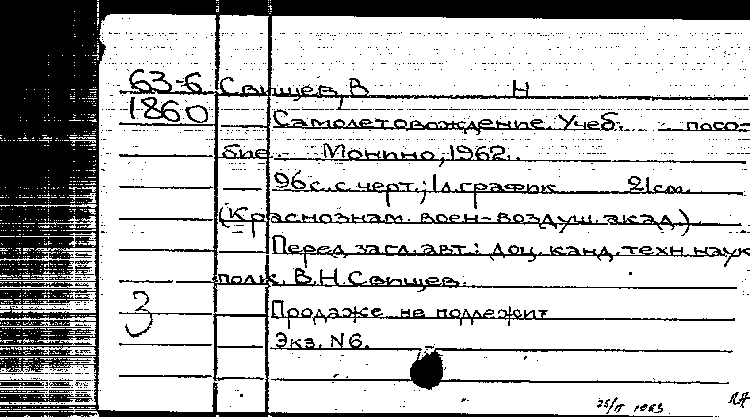 63-6 Свищев, В Н
1860 Самолетовождение. Учеб. посо-
бие. Монино, 1962.
96с. с черт.; 1л. график 21см.
(Краснознам. воен-воздуш. акад.)
Перед загл. авт.: доц. канд. техн. наук
полк. В.Н. Свищев.
Продаже не подлежит
3
Экз. N6.
1963